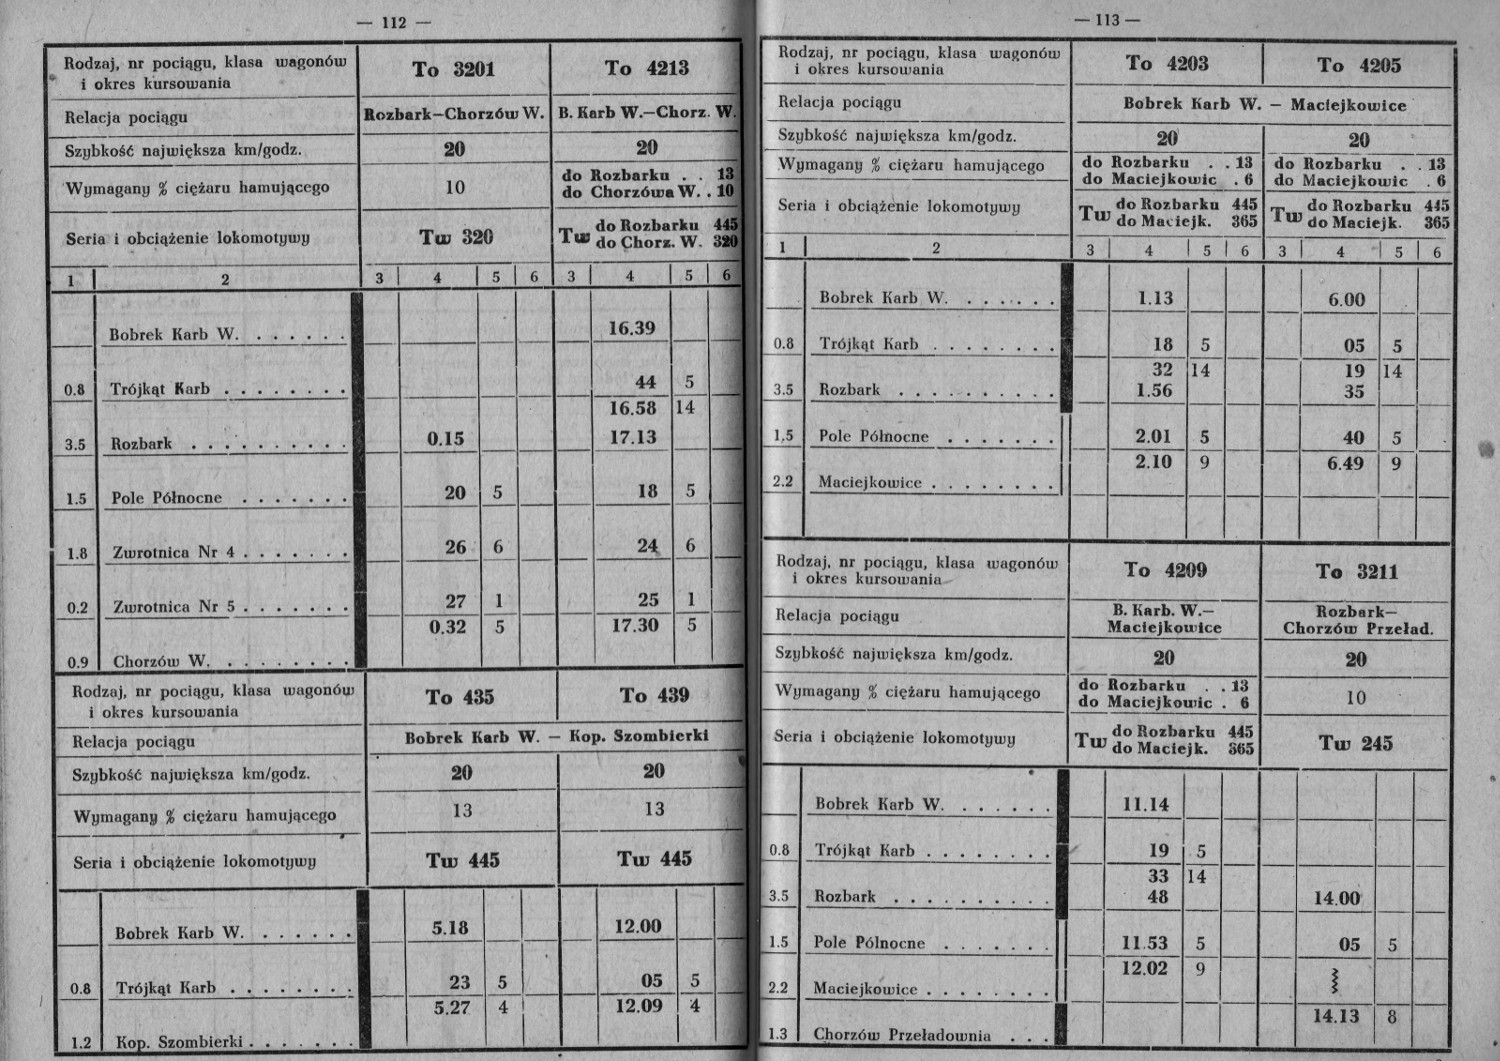 — 112 —
Rodzaj, nr pociągu, klasa wagonów
i okres kursowania
To 3201
To 4213
Relacja pociągu
Rozbark—Chorzów W.
B. Karb W.—Chorz. W.
Szybkość największa km/godz.
20
20
Wymagany % ciężaru hamującego
10
do Rozbarku . . 13
do Chorzówa W. . 10
Seria i obciążenie lokomotywy
Tw 320
Tw do Rozbarku 445
do Chorz. W. 320
1 2 3 4 5 6 3 4 5 6
Bobrek Karb W. . . . . . . 16.39
0.8 Trójkąt Karb . . . . . . . . 44 5
16.58 14
3.5 Rozbark . . . . . . . . . . 0.15 17.13
1.5 Pole Północne . . . . . . . 20 5 18 5
1.8 Zwrotnica Nr 4 . . . . . . . 26 6 24 6
0.2 Zwrotnica Nr 5 . . . . . . . 27 1 25 1
0.32 5 17.30 5
0.9 Chorzów W. . . . . . . . .
Rodzaj, nr pociągu, klasa wagonów
i okres kursowania
To 435
To 439
Relacja pociągu
Bobrek Karb W. — Kop. Szombierki
Szybkość największa km/godz.
20
20
Wymagany % ciężaru hamującego
13
13
Seria i obciążenie lokomotywy
Tw 445
Tw 445
Bobrek Karb W. . . . . . . 5.18 12.00
0.8 Trójkąt Karb . . . . . . . . 23 5 05 5
5.27 4 12.09 4
1.2 Kop. Szombierki . . . . . . .
— 113 —
Rodzaj, nr pociągu, klasa wagonów
i okres kursowania
To 4203
To 4205
Relacja pociągu
Bobrek Karb W. — Maciejkowice
Szybkość największa km/godz.
20
20
Wymagany % ciężaru hamującego
do Rozbarku . . 13
do Maciejkowic . 6
do Rozbarku . . 13
do Maciejkowic . 6
Seria i obciążenie lokomotywy
Tw do Rozbarku 445
do Maciejk. 365
Tw do Rozbarku 445
do Maciejk. 365
1 2 3 4 5 6 3 4 5 6
Bobrek Karb W. . . . . . . 1.13 6.00
0.8 Trójkąt Karb . . . . . . . . 18 5 05 5
32 14 19 14
3.5 Rozbark . . . . . . . . . . 1.56 35
1.5 Pole Północne . . . . . . . 2.01 5 40 5
2.10 9 6.49 9
2.2 Maciejkowice . . . . . . . .
Rodzaj, nr pociągu, klasa wagonów
i okres kursowania
To 4209
To 3211
Relacja pociągu
B. Karb. W.—
Maciejkowice
Rozbark—
Chorzów Przeład.
Szybkość największa km/godz.
20
20
Wymagany % ciężaru hamującego
do Rozbarku . . 13
do Maciejkowic . 6
10
Seria i obciążenie lokomotywy
Tw do Rozbarku 445
do Maciejk. 365
Tw 245
Bobrek Karb W. . . . . . . 11.14
0.8 Trójkąt Karb . . . . . . . . 19 5
33 14
3.5 Rozbark . . . . . . . . . . 48 14.00
1.5 Pole Północne . . . . . . . 11.53 5 05 5
12.02 9
2.2 Maciejkowice . . . . . . . .
14.13 8
1.3 Chorzów Przeładownia . . .